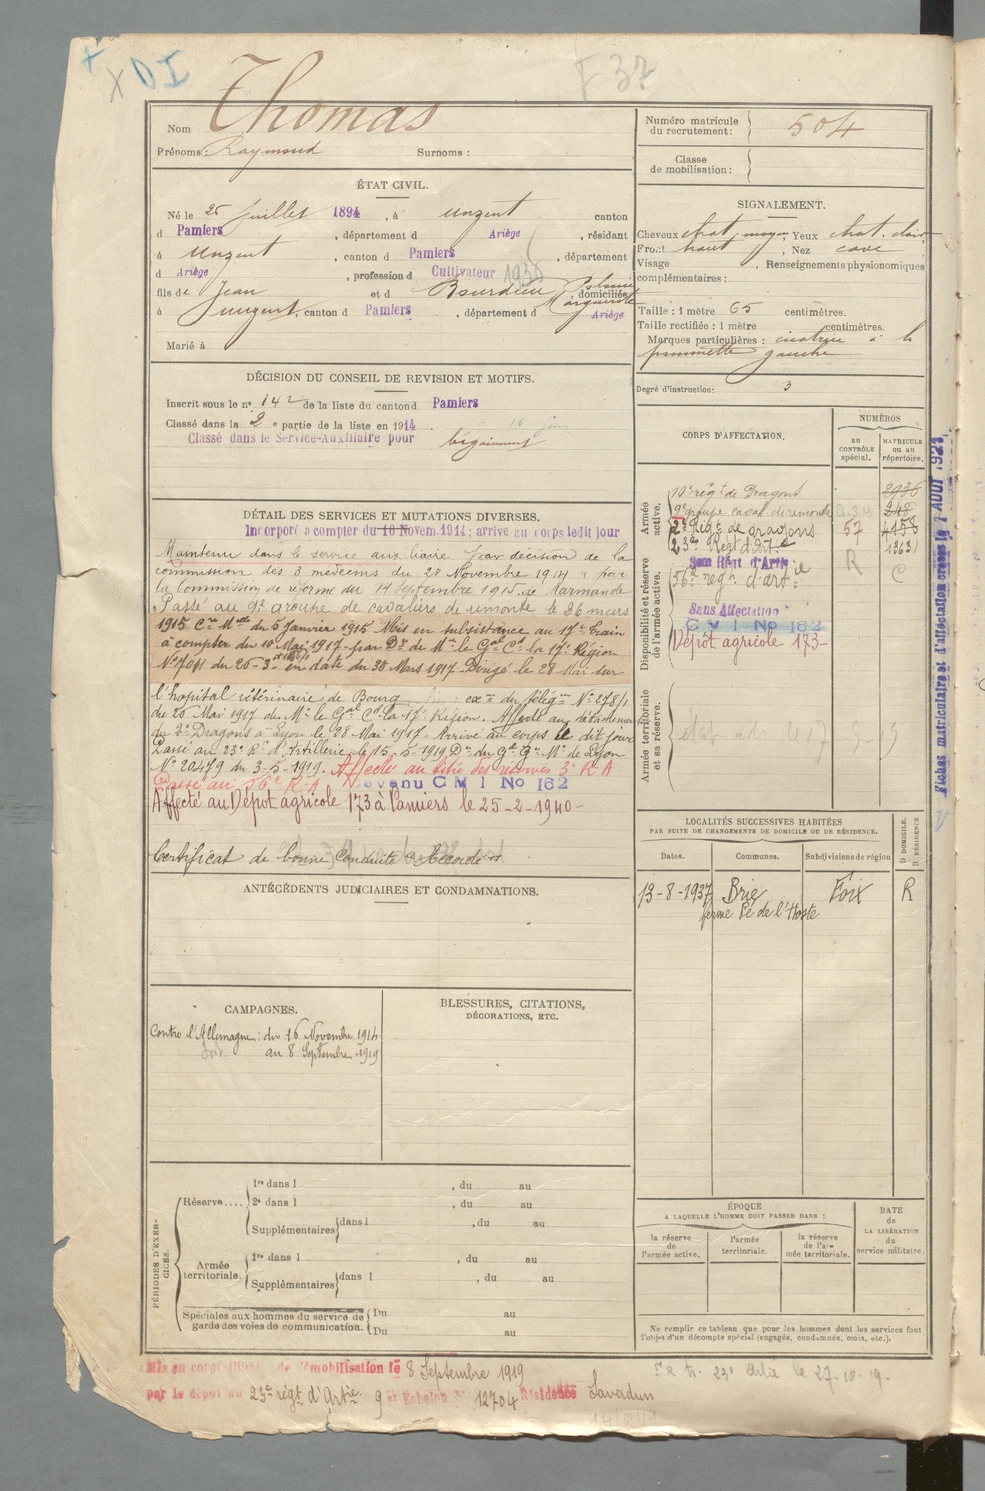 X DI
F 37
Nom Thomas
Prénoms : Raymond Surnoms :
Numéro matricule du recrutement : 504
Classe de mobilisation :
ÉTAT CIVIL.
Né le 25 Juillet 1894, à Unzent canton
d Pamiers, département d Ariège, résidant
à Unzent, canton d Pamiers, département
d Ariège, profession d Cultivateur 1938
fils de Jean et d Bourdieu Marguerite domiciliés
à Unzent, canton d Pamiers, département d Ariège
Marié à
SIGNALEMENT.
Cheveux chat. moyen, Yeux chat. clair
Front haut, Nez cave
Visage , Renseignements physionomiques
complémentaires :
Taille : 1 mètre 65 centimètres.
Taille rectifiée : 1 mètre centimètres.
Marques particulières : cicatrice à la
pommette gauche
Degré d'instruction : 3
DÉCISION DU CONSEIL DE REVISION ET MOTIFS.
Inscrit sous le n° 142 de la liste du canton d Pamiers
Classé dans la 2e partie de la liste en 1914
Classé dans le Service-Auxiliaire pour bégaiement
DÉTAIL DES SERVICES ET MUTATIONS DIVERSES.
Incorporé à compter du 16 Novem. 1914 ; arrivé au corps ledit jour
Maintenu dans le service auxiliaire par décision de la
commission des 3 médecins du 28 Novembre 1914 & par
la Commission de réforme du 14 Septembre 1915 de Marmande
Passé au 9e groupe de cavaliers de remonte le 26 mars
1915 Cre Mlle du 5 Janvier 1915 Mis en subsistance au 17e Train
à compter du 10 Mai 1917 par Don de Mr le Gal Ct la 17e Région
No 7011 du 20-3 en date du 30 Mars 1917 Dirigé le 28 Mai sur
l'hôpital vétérinaire de Bourg exon du télégme No 278/1
du 25 Mai 1917 de Mr le Gal Ct la 17e Région. Affecté au détachement
du 2e Dragons à Lyon le 28 Mai 1917. Arrivé au corps le dit jour
Passé au 23e Rt d'Artillerie le 15-5-1919 Don du Gal Gr Mre de Lyon
No 20479 du 3-5-1919. Affecté au titre des réserves 3e R A
Passé au 56e R.A. Devenu C M I No 162
Affecté au Dépôt agricole 173 à Pamiers le 25-2-1940-
Certificat de bonne Conduite "Accordé"
CORPS D'AFFECTATION.
NUMÉROS
au CONTRÔLE spécial.
MATRICULE ou au répertoire.
Armée active.
10e régt de Dragons 2936
9e groupe caval. de remonte 248
2e Régt de dragons 57 4158
23me Régt d'Artie 13631
Disponibilité et réserve de l'armée active.
3em Rént d'Artie R C
56me régt d'artie
Sans Affectation
C M I No 162
Dépôt agricole 173-
Armée territoriale et sa réserve.
Fiches matriculaire et d'affectation créées le 1 AOUT 1921
V
ANTÉCÉDENTS JUDICIAIRES ET CONDAMNATIONS.
LOCALITÉS SUCCESSIVES HABITÉES
PAR SUITE DE CHANGEMENTS DE DOMICILE OU DE RÉSIDENCE.
Dates. Communes. Subdivisions de région
D DOMICILE. R RÉSIDENCE
13-8-1937 Brie Foix R
ferme Pé de l'Hoste
CAMPAGNES.
Contre l'Allemagne : du 16 Novembre 1914
au 8 Septembre 1919
BLESSURES, CITATIONS,
DÉCORATIONS, ETC.
PÉRIODES D'EXERCICES.
Réserve....
1re dans l , du au
2e dans l , du au
Supplémentaires dans l , du au
Armée territoriale.
1re dans l , du au
Supplémentaires dans l , du au
Spéciales aux hommes du service de garde des voies de communication.
Du au
Du au
ÉPOQUE
A LAQUELLE L'HOMME DOIT PASSER DANS :
la réserve de l'armée active.
l'armée territoriale.
la réserve de l'armée territoriale.
DATE de LA LIBÉRATION du service militaire.
Ne remplir ce tableau que pour les hommes dont les services font
l'objet d'un décompte spécial (engagés, condamnés, omis, etc.).
Mis en congé illimité de démobilisation le 8 Septembre 1919
par le dépôt du 23e régt d'Artie. 9e Echelon N° 12704 Résidence Saverdun